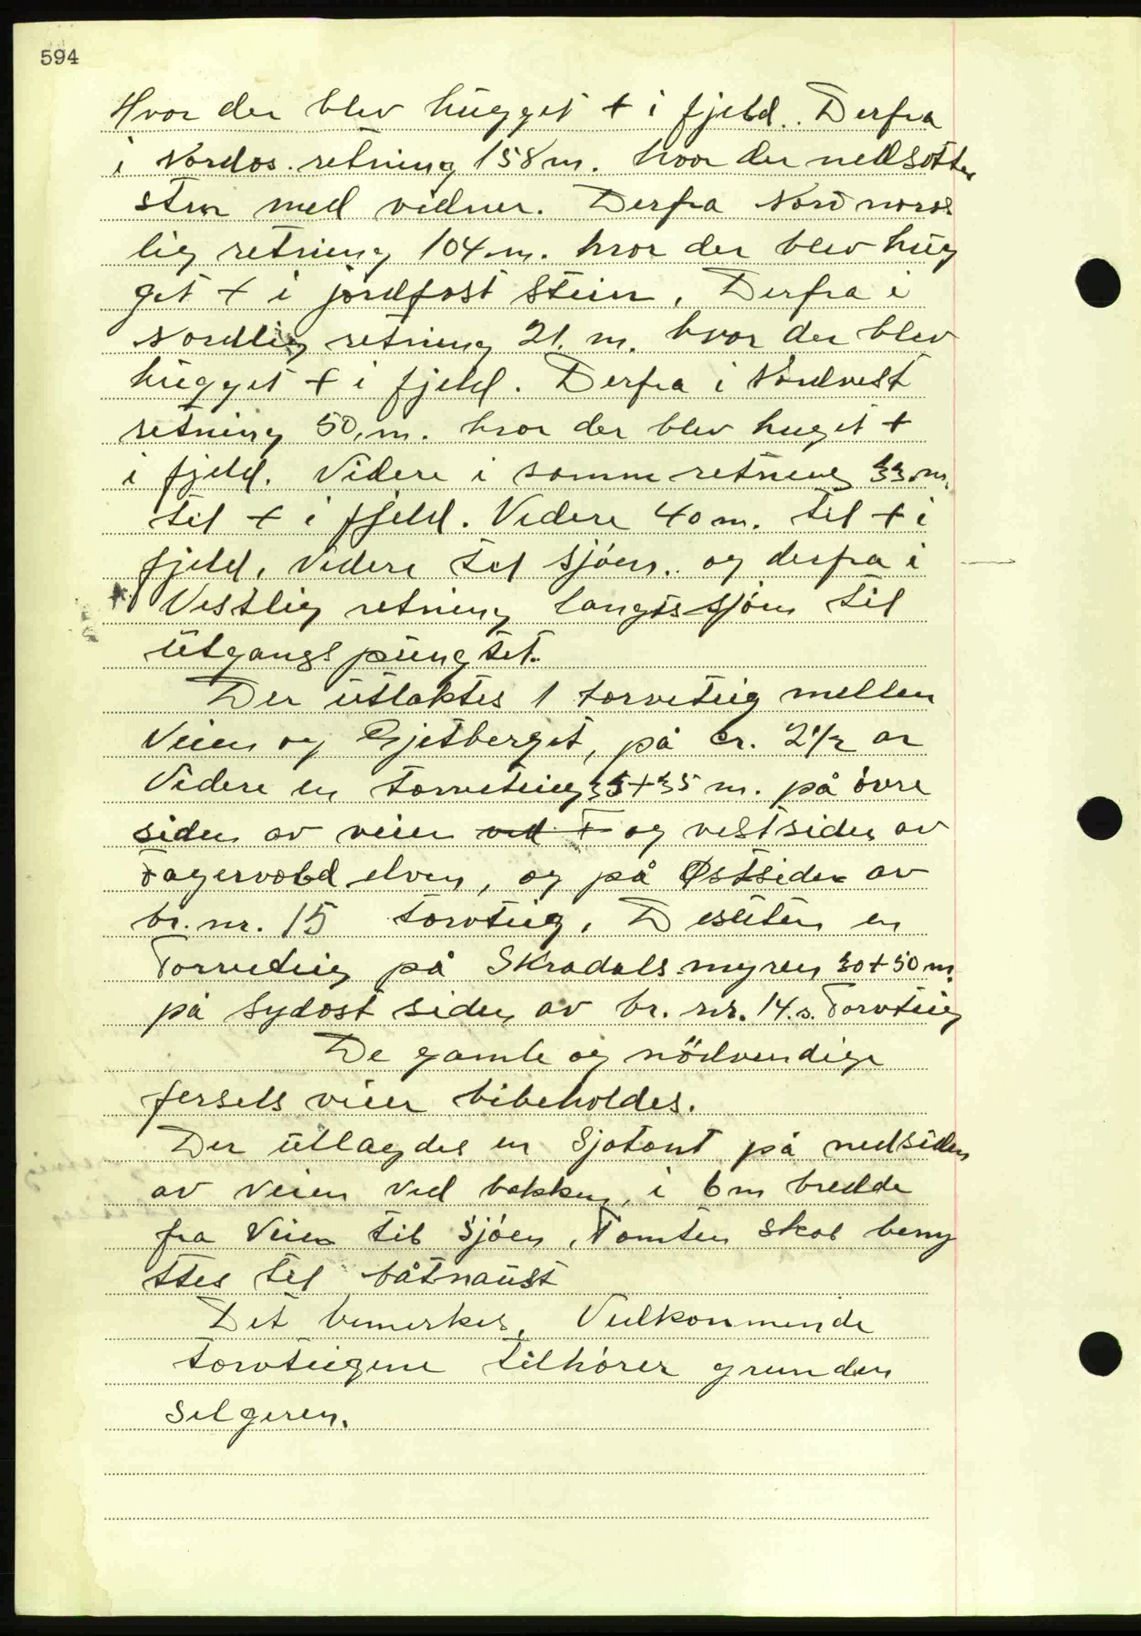 594
Hvor der blev hugget + i fjeld. Derfra
i Nordos. retning 158 m. hvor der nedsattes
sten med vidner. Derfra Nord nord
lig retning 104 m. hvor der blev hug
get + i jordfast stein. Derfra i
nordlig retning 21. m. hvor der blev
hugget + i fjeld. Derfra i Nordvest
retning 50. m. hvor der blev huget +
i fjeld. Videre i samme retning 33. m.
til + i fjeld. Videre 40 m. til + i
fjeld, videre til sjöen. og derfra i
Vestlig retning langs sjöen til
utgangspungtet.
Der utlaktes 1 torvteig mellem
Veien og Gjetberget, på cr. 2 1/2 ar
Videre en torvteig 35+35 m. på övre
siden av veien ved + og vestsiden av
Fagervold elven, og på Østsiden av
br. nr. 15 torvteig. Desuten en
Torvteig på Skradals myren 30+50 m.
på Sydost siden av br. nr. 14.s. Torvteig
De gamle og nödvendige
fersels veier bibeholdes.
Der utlagdes en Sjotomt på nedsiden
av veien ved bakken, i 6 m bredde
fra Veien til Sjöen, Tomten skal beny
ttes til båtnaust
Det bemerkes, Vedkommende
torvteigene tilhörer grunden
selgeren.